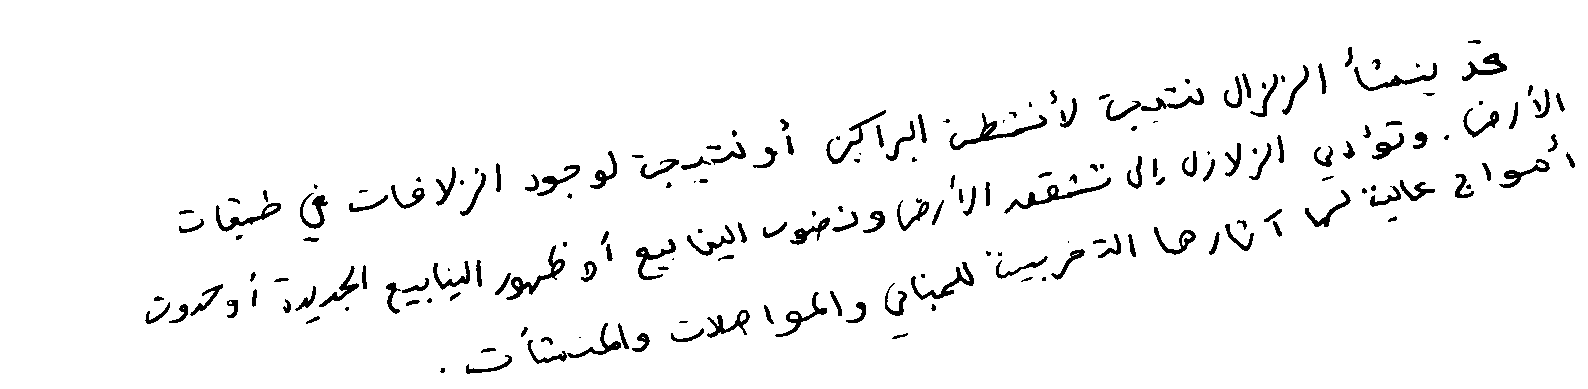 قد ينشأ الزلزال نتيجة لأنشطة البراكين أو نتيجة لوجود انزلاقات في طبقات
الأرض. وتؤدي الزلازل إلى تشقق الأرض ونضوب الينابيع أو ظهور الينابيع الجديدة أو حدوث
أمواج عالية لها آثارها التخريبية للمباني والمواصلات والمنشأت.